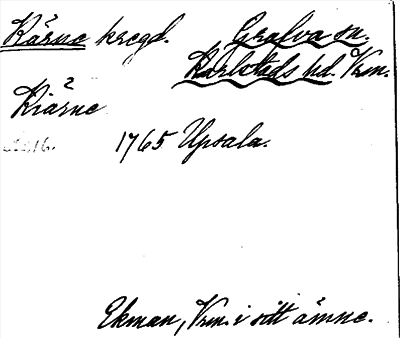 Kärne kregd. Grafva sn.
Karlstads hd. Vrm.
Kiärne 2
1765 Upsala.
Ekman, Vrm. i sitt ämne.